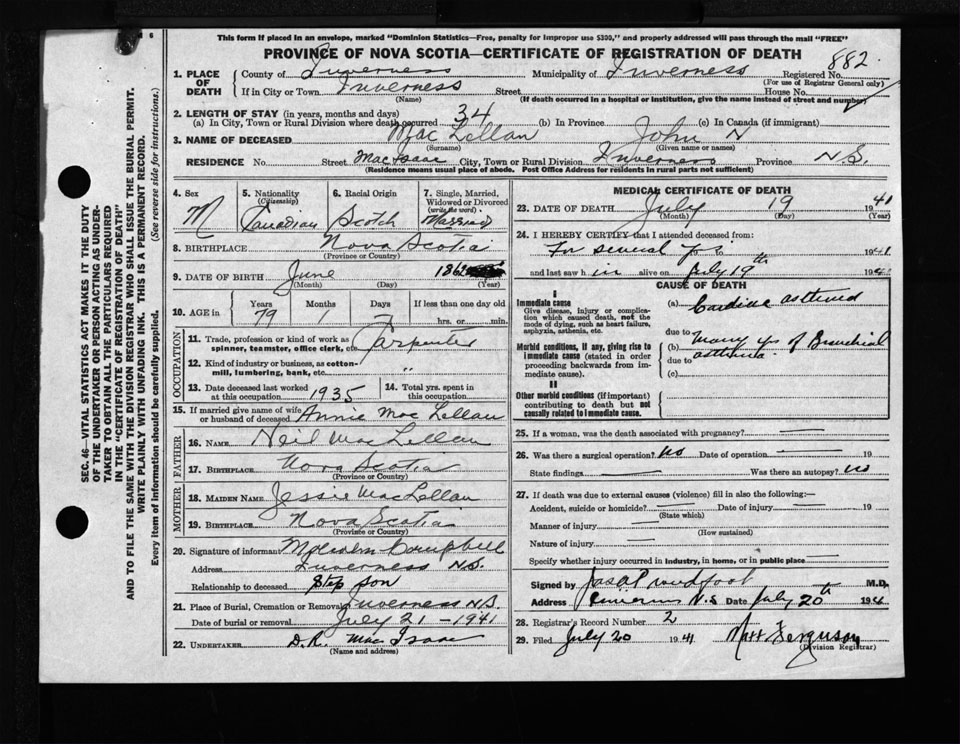 This form if placed in an envelope, marked "Dominion Statistics—Free, penalty for improper use $300," and properly addressed will pass through the mail "FREE"
PROVINCE OF NOVA SCOTIA—CERTIFICATE OF REGISTRATION OF DEATH
882
1. PLACE OF DEATH County of Inverness Municipality of Inverness Registered No.
(For use of Registrar General only)
If in City or Town Inverness Street House No.
(Name) (If death occurred in a hospital or institution, give the name instead of street and number)
2. LENGTH OF STAY (in years, months and days)
(a) In City, Town or Rural Division where death occurred 34 (b) In Province (c) In Canada (if immigrant)
3. NAME OF DECEASED Mac Lellan John N
(Surname) (Given name or names)
RESIDENCE No. Street MacIsaac City, Town or Rural Division Inverness Province N.S.
(Residence means usual place of abode. Post Office Address for residents in rural parts not sufficient)
4. Sex M
5. Nationality (Citizenship) Canadian
6. Racial Origin Scotch
7. Single, Married, Widowed or Divorced (write the word) Married
8. BIRTHPLACE Nova Scotia
(Province or Country)
9. DATE OF BIRTH June 1862
(Month) (Day) (Year)
10. AGE in Years 79 Months 1 Days If less than one day old hrs. or min.
OCCUPATION
11. Trade, profession or kind of work as spinner, teamster, office clerk, etc. Carpenter
12. Kind of industry or business, as cotton-mill, lumbering, bank, etc. "
13. Date deceased last worked at this occupation 1935 14. Total yrs. spent in this occupation
15. If married give name of wife or husband of deceased Annie Mac Lellan
FATHER
16. NAME Neil MacLellan
17. BIRTHPLACE Nova Scotia
(Province or Country)
MOTHER
18. MAIDEN NAME Jessie MacLellan
19. BIRTHPLACE Nova Scotia
(Province or Country)
20. Signature of informant Malcolm Campbell
Address Inverness N.S.
Relationship to deceased Step son
21. Place of Burial, Cremation or Removal Inverness N.S.
Date of burial or removal July 21 - 1941
22. UNDERTAKER D.R. MacIsaac
(Name and address)
MEDICAL CERTIFICATE OF DEATH
23. DATE OF DEATH July 19 1941
(Month) (Day) (Year)
24. I HEREBY CERTIFY that I attended deceased from:
For several yrs to 1941
and last saw him alive on July 19th 194
CAUSE OF DEATH
I
Immediate cause
Give disease, injury or complication which caused death, not the mode of dying, such as heart failure, asphyxia, asthenia, etc.
(a) Cardiac
due to
Morbid conditions, if any, giving rise to immediate cause (stated in order proceeding backwards from immediate cause).
(b) many yrs of Bronchial asthma
due to
(c)
II
Other morbid conditions (if important) contributing to death but not causally related to immediate cause.
25. If a woman, was the death associated with pregnancy?
26. Was there a surgical operation? no Date of operation 19
State findings Was there an autopsy? no
27. If death was due to external causes (violence) fill in also the following:—
Accident, suicide or homicide? Date of injury 19
(State which)
Manner of injury
(How sustained)
Nature of injury
Specify whether injury occurred in industry, in home, or in public place
Signed by Proudfoot M.D.
Address Inverness N.S Date July 20th 194
28. Registrar's Record Number 2
29. Filed July 20 1941 Ferguson
(Division Registrar)
SEC. 46—VITAL STATISTICS ACT MAKES IT THE DUTY
OF THE UNDERTAKER OR PERSON ACTING AS UNDER-
TAKER TO OBTAIN ALL THE PARTICULARS REQUIRED
IN THE "CERTIFICATE OF REGISTRATION OF DEATH"
AND TO FILE THE SAME WITH THE DIVISION REGISTRAR WHO SHALL ISSUE THE BURIAL PERMIT.
WRITE PLAINLY WITH UNFADING INK. THIS IS A PERMANENT RECORD.
Every item of information should be carefully supplied. (See reverse side for instructions.)